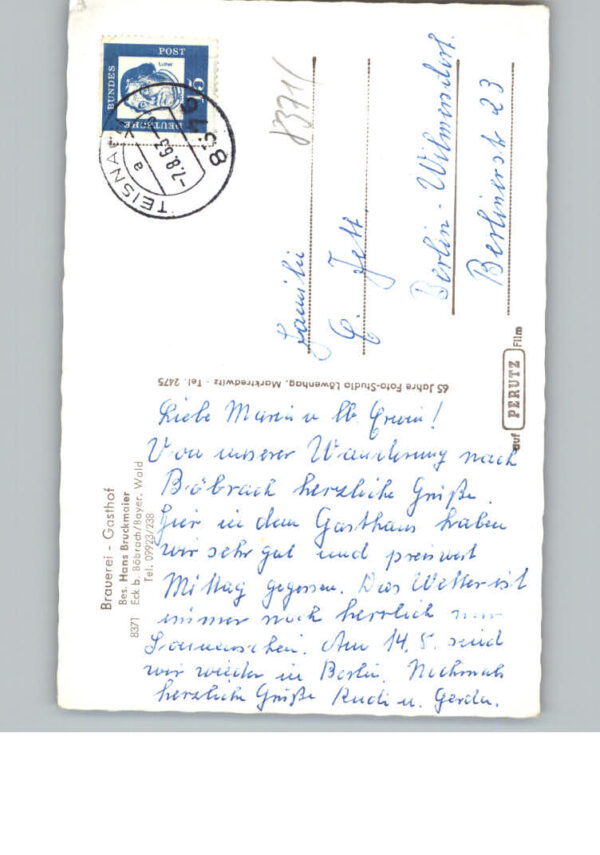 BUNDES
POST
DEUTSCHE
Luther
15
TEISNACH
a
-7.8.63-
8371/
Familie
E. Jett
Berlin-Wilmersdorf
Berlinerst 23
65 Jahre Foto-Studio Löwenhag, Marktredwitz · Tel. 2475
auf PERUTZ Film
Brauerei - Gasthof
Bes. Hans Bruckmaier
8371 Eck b. Böbrach/Bayer. Wald
Tel. 09923/238
Liebe Maria u lb. Erwin!
Von unserer Wanderung nach
Böbrach herzliche Grüße.
Hier in dem Gasthaus haben
wir sehr gut und preiswert
Mittag gegessen. Das Wetter ist
immer noch herrlich nur
Sonnenschein. Am 14. 8. sind
wir wieder in Berlin. Nochmals
herzliche Grüße Rudi u. Gerda.